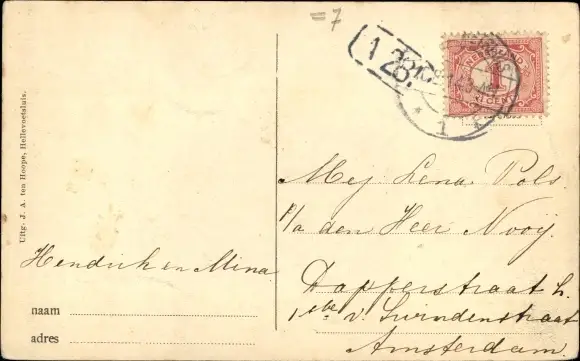 =7
1 28.
1 CENT
Mej Lena Pols.
p/a den Heer Nooij.
Dapperstraat h.
1ste v. Swindenstraat
Amsterdam
Hendrik en Mina
naam
adres
Uitg. J. A. ten Hoope, Hellevoetsluis.